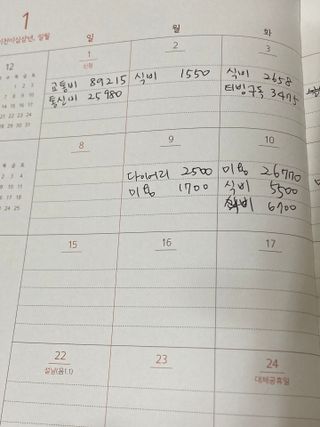 1
이천이십삼년, 일월
일 월 화
12
1 2 3
신정
교통비 89215
통신비 25980
식비 1550
식비 2658
티빙구독 3475
8 9 10
다이어리 2500
미용 1700
미용 26770
식비 5500
식비 6700
15 16 17
22 23 24
설날(음1.1)
대체공휴일